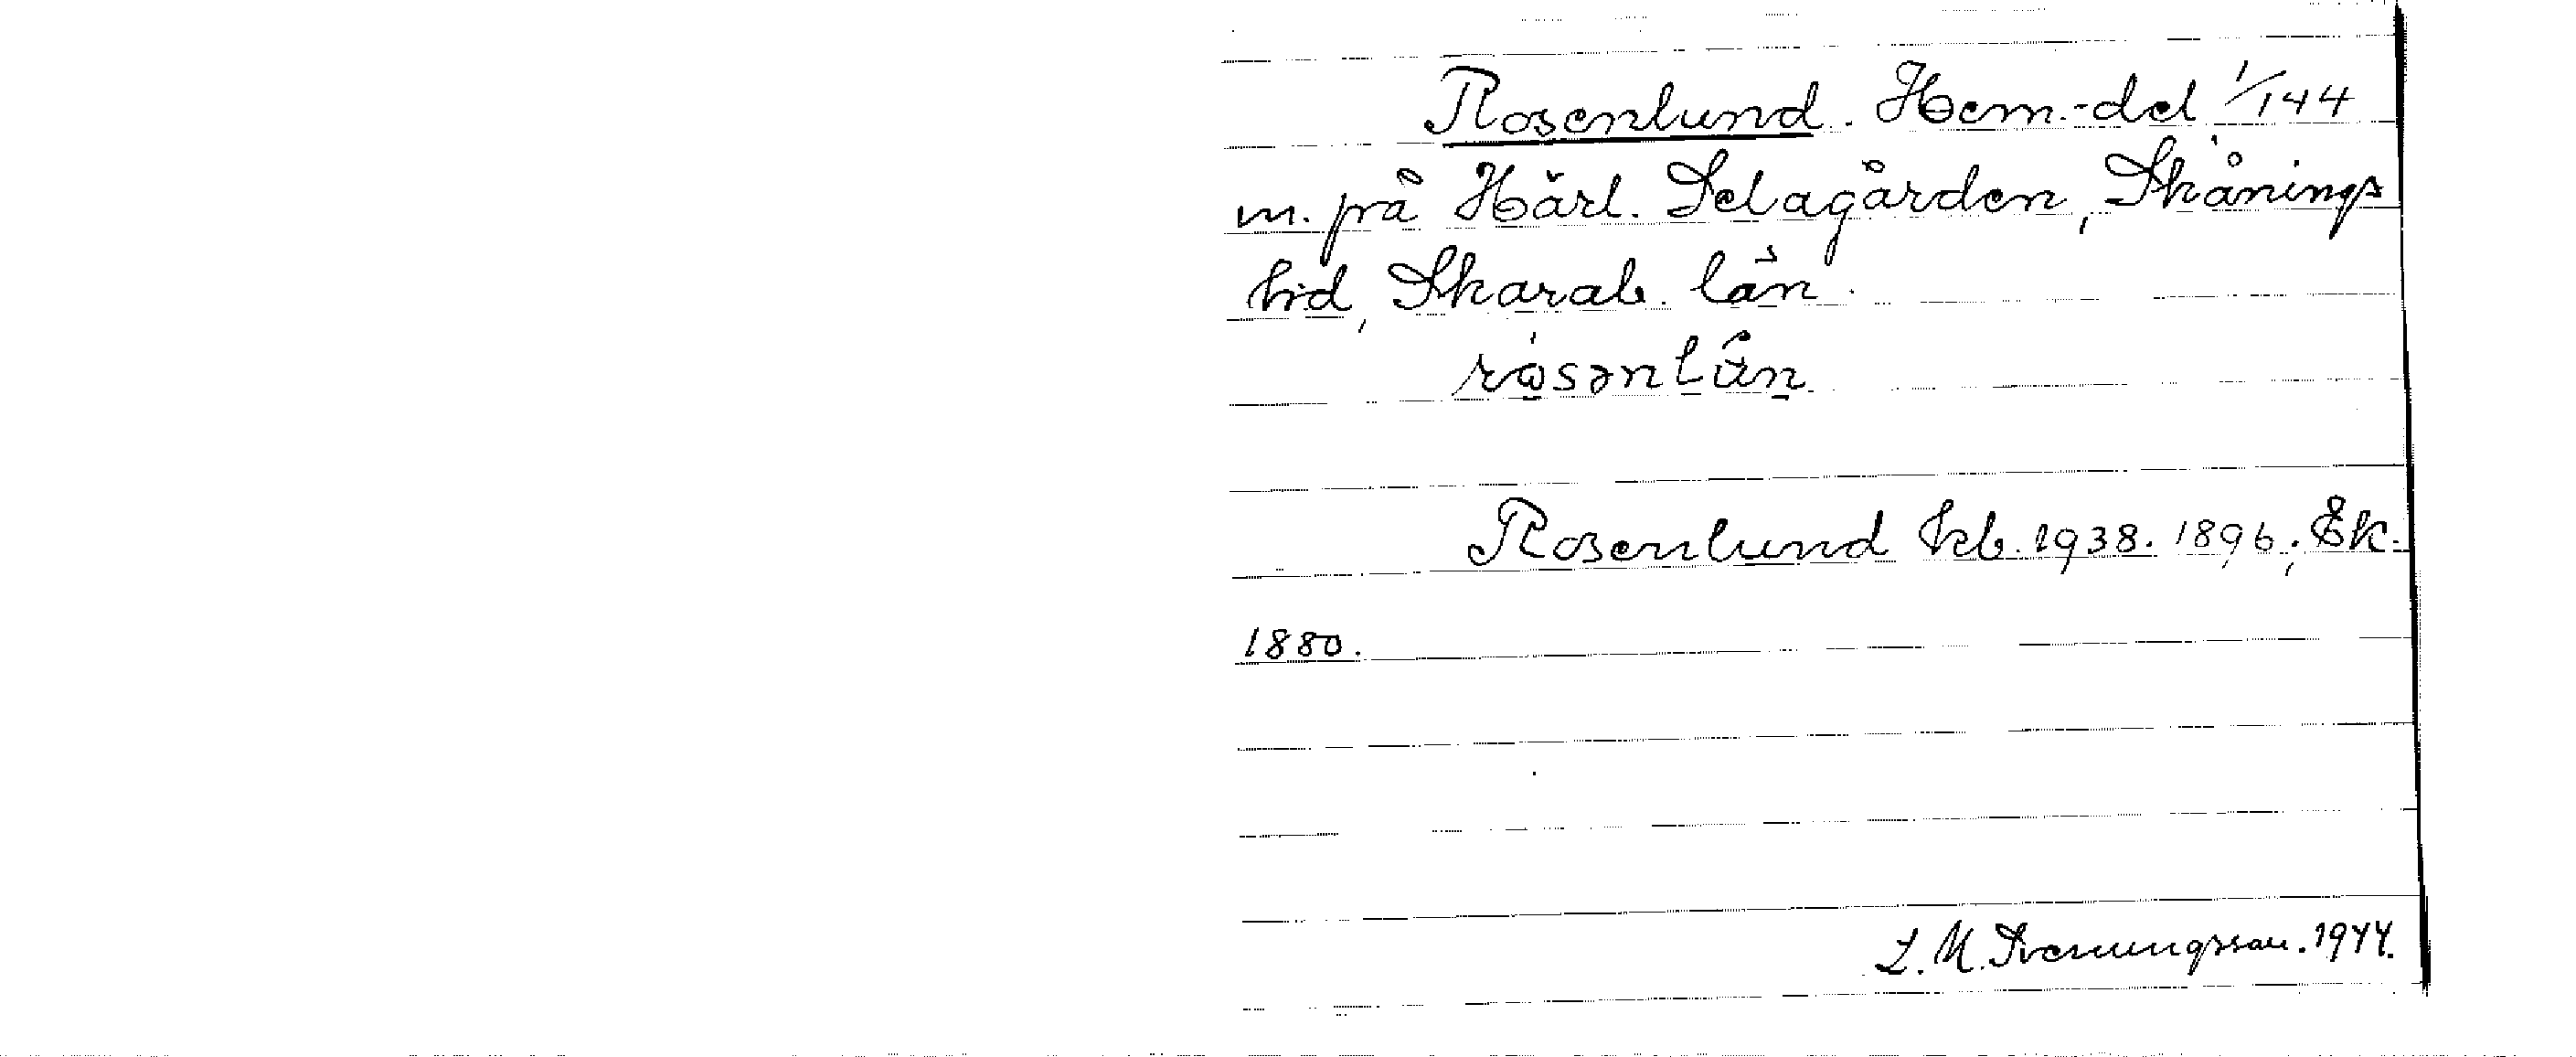 Rosenlund. Hem.-del 1/144
m. på Härl. Selagården, Skånings
hd, Skarab. län.
Rosenlund kb. 1938. 1896; Ek.
1880.
L. M. Svenungsson. 1944.